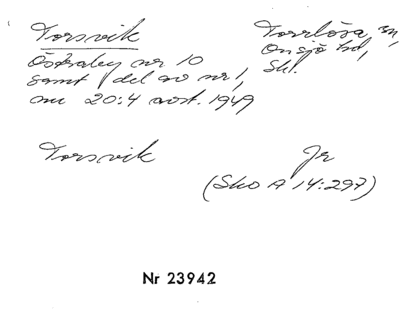 Torsvik
Torrlösa sn,
Onsjö hd,
Skl.
Österaby nr 10
samt del av nr 1,
nu 20:4 avst. 1949
Torsvik
Jr
(Sko A 14:297)
Nr 23942